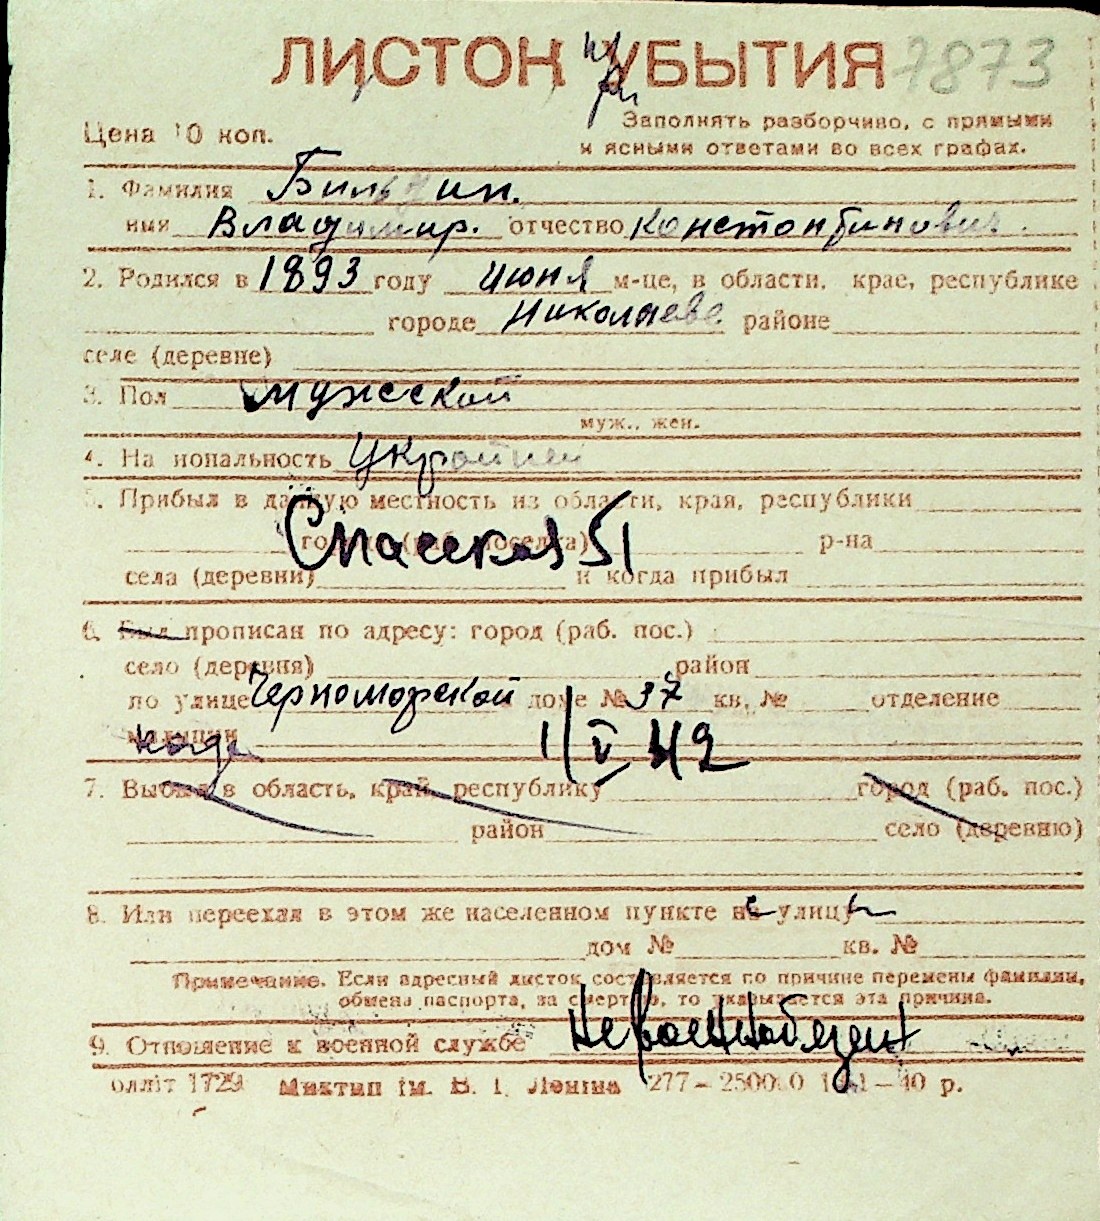 ЛИСТОК УБЫТИЯ 7873
при
Цена 10 коп.
Заполнять разборчиво, с прямыми
и ясными ответами во всех графах.
1. Фамилия
имя Владимир. отчество Константинович.
2. Родился в 1893 году июня м-це, в области, крае, республике
городе Николаеве районе
селе (деревне)
3. Пол мужской
муж., жен.
4. Национальность
5. Прибыл в данную местность из области, края, республики
города (раб. поселка) р-на
Спасская 51
села (деревни) и когда прибыл
6. Был прописан по адресу: город (раб. пос.)
село (деревня) район
по улице Черноморской доме № 37 кв. № отделение
милиции 1/V 42
7. Выбыл в область, край, республику город (раб. пос.)
район село (деревню)
8. Или переехал в этом же населенном пункте на улицу
дом № кв. №
Примечание. Если адресный листок составляется по причине перемены фамилии,
обмена паспорта, за смертью, то указывается эта причина.
9. Отношение к военной службе Невоеннобязан
оллiт 1729 Миктип iм. В. I. Ленiна 277—250000 1941—40 р.